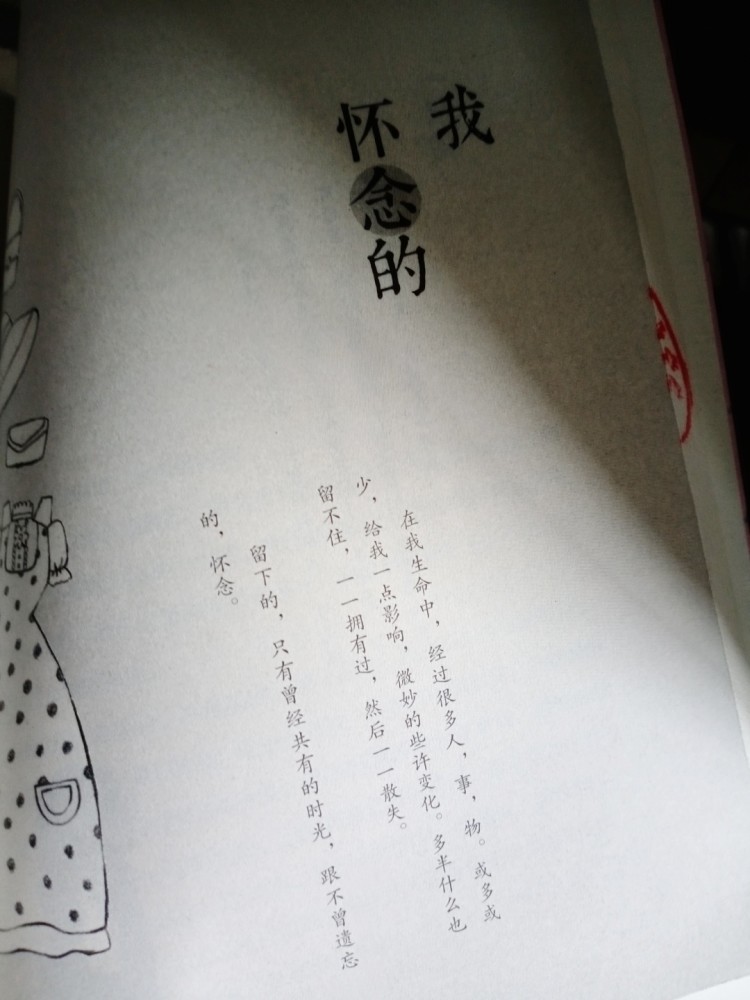 我
怀念的
在我生命中，经过很多人，事，物。或多或
少，给我一点影响，微妙的些许变化。多半什么也
留不住，一一拥有过，然后一一散失。
留下的，只有曾经共有的时光，跟不曾遗忘
的，怀念。